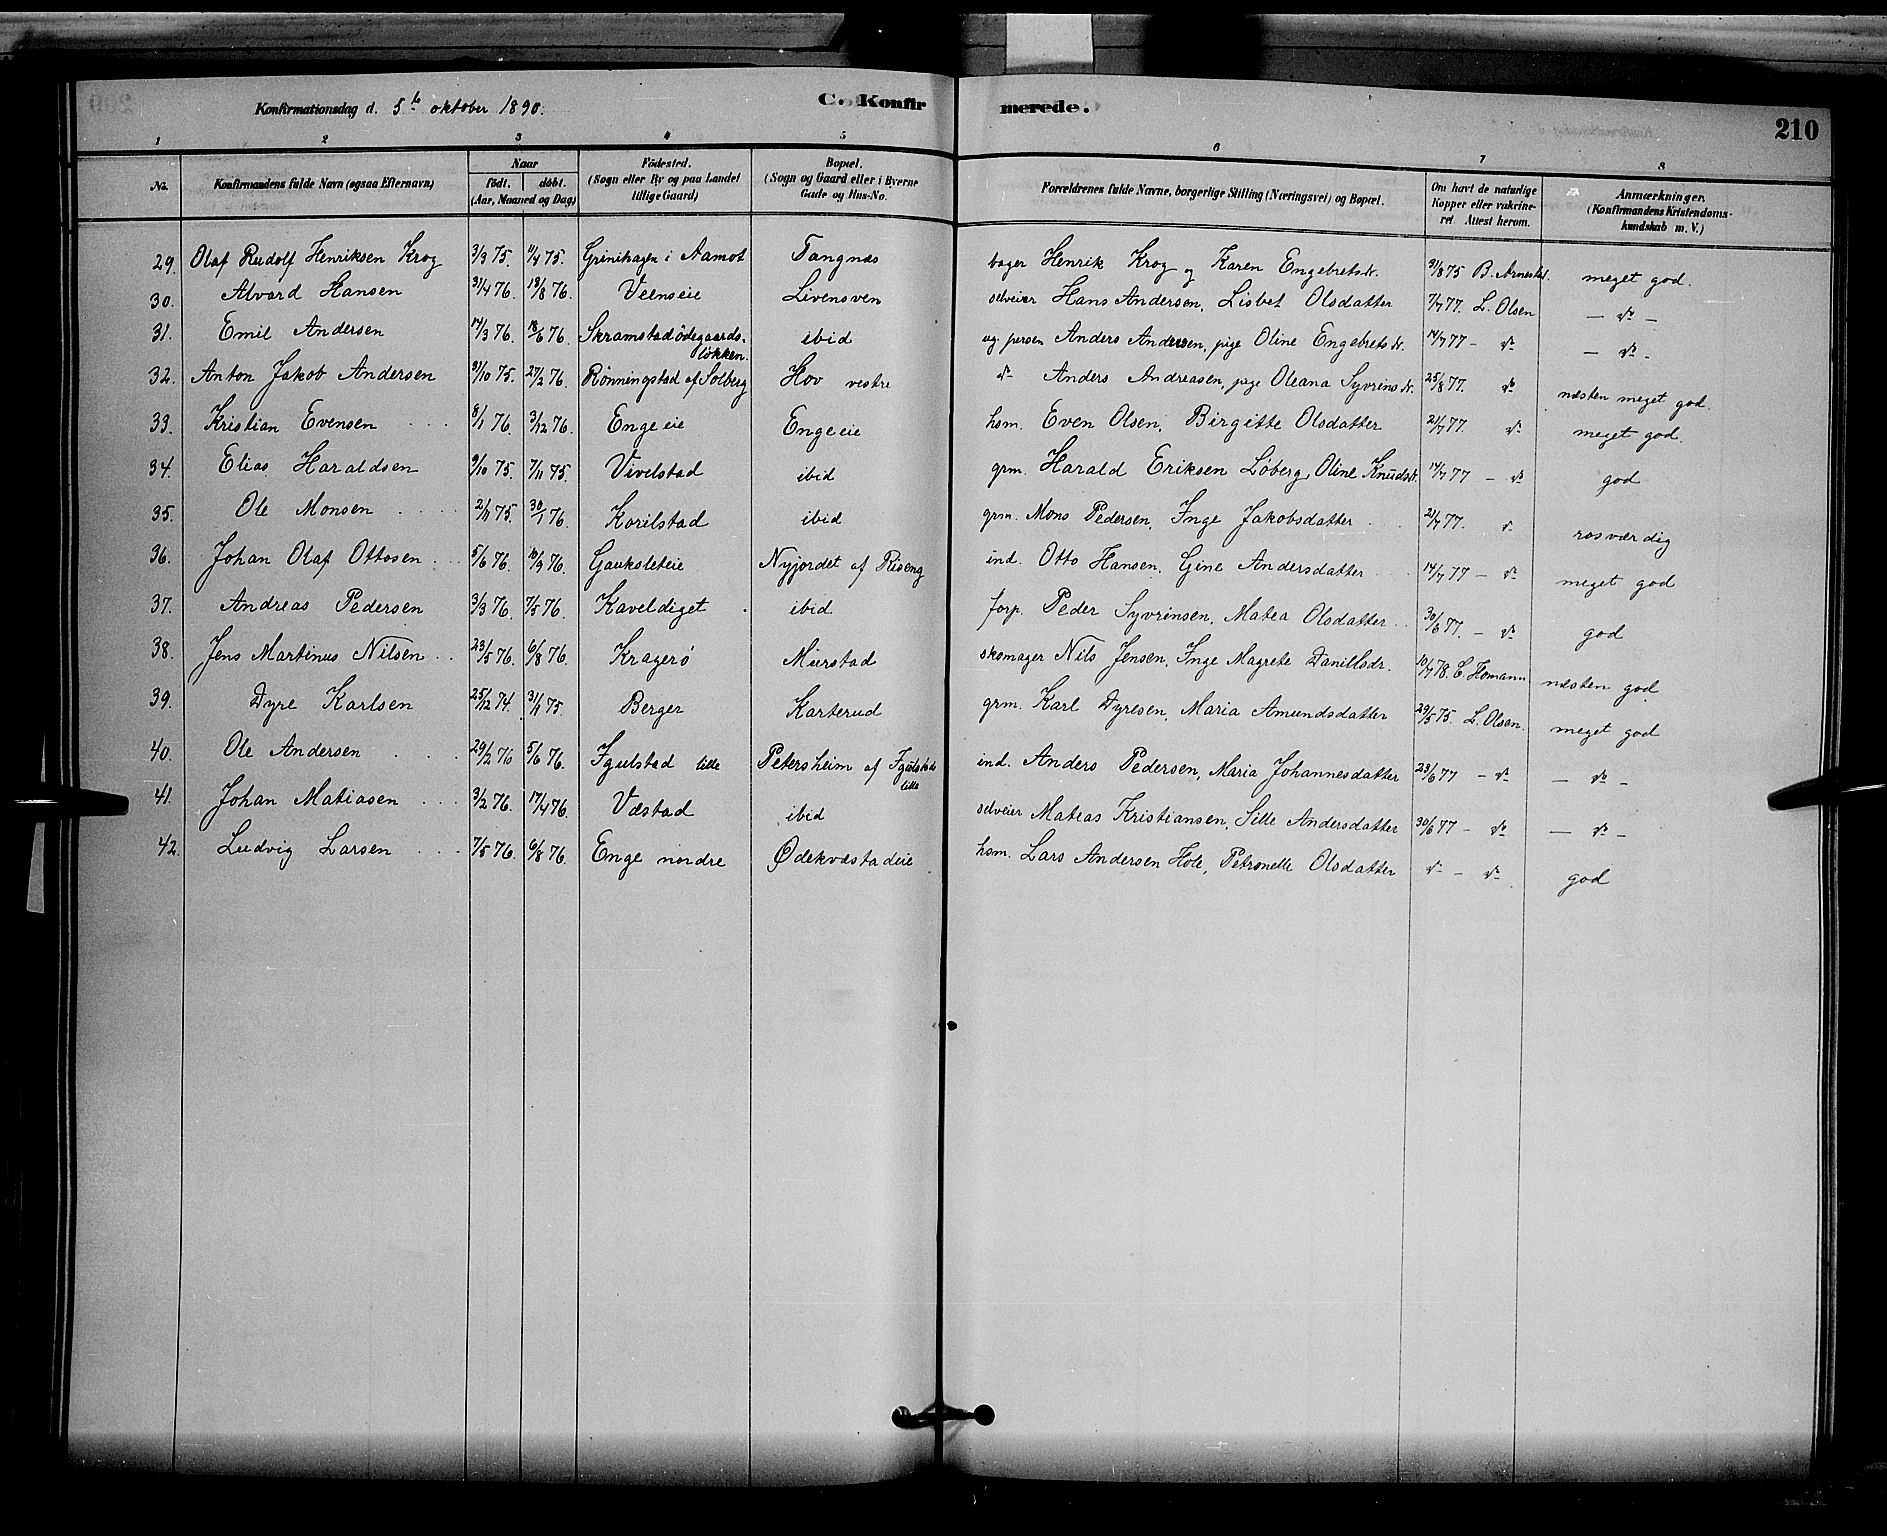 Konfirmationsdag d. 5te oktober 1890. C. Konfirmerede. 210
1 2 3 4 5 6 7 8
No. Konfirmandens fulde Navn (ogsaa Efternavn) Naar födt. döbt. (Aar, Maaned og Dag) Födested. (Sogn eller By og paa Landet tillige Gaard) Bopæl. (Sogn og Gaard eller i Byerne Gade og Hus-No. Forældrenes fulde Navne, borgerlige Stilling (Næringsvei) og Bopæl. Om havt de naturlige Kopper eller vakcineret Attest herom. Anmærkninger. (Konfirmandens Kristendomskundskab m. V.)
29. Olaf Rudolf Henriksen Krog 3/3 75. 11/4 75. Grinihagen i Aamot Tangnæs bager Henrik Krog og Karen Engebretsdr. 31/8 75 B. Arnestad. meget god.
30. Alvard Hansen 31/4 76. 13/8 76. Veenseie Livensven selveier Hans Andersen, Lisbet Olsdatter 7/7 77. L. Olsen — do —
31. Emil Andersen 14/3 76. 18/6 76. Skramstadødegaardsløkken. ibid ug. person Anders Andersen, pige Oline Engebretsdr. 14/7 77 — do — do —
32. Anton Jakob Andersen 31/10 75. 27/2 76. Rønningstad af Solberg Hov vestre do Anders Andreasen, pige Oleana Syvrinsdr. 25/8 77. do næsten meget god.
33. Kristian Evensen 8/1 76. 3/12 76. Enge eie Enge eie hsm. Even Olsen, Birgitte Olsdatter 21/7 77. do meget god.
34. Elias Haraldsen 9/10 75. 7/11 75. Vivelstad ibid grm. Harald Eriksen Løberg, Oline Knudsdr. 14/7 77 — do god
35. Ole Monsen 2/11 75. 30/1 76. Korilstad ibid grm. Mons Pedersen, Inge Jakobsdatter 21/7 77. do rosværdig
36. Johan Olaf Ottosen 5/6 76. 10/9 76. Gauksleteie Nyjordet af Riseng ind. Otto Hansen, Gine Andersdatter 14/7 77 — do meget god
37. Andreas Pedersen 3/3 76. 7/5 76. Kaveldiget ibid forp. Peder Syvrinsen, Matea Olsdatter 30/6 77. — do god
38. Jens Martinus Nilsen 23/5 76. 6/8 76. Kragerø Murstad skomager Nils Jensen, Inge Magrete Danillsdr. 10/7 78. C Homann næsten god
39. Dyre Karlsen 25/12 74. 31/1 75. Berger Karterud grm. Karl Dyresen, Maria Amundsdatter 29/5 75. L. Olsen. meget god
40. Ole Andersen 29/2 76 5/6 76. Igulstad lille Petersheim af Igulstad lille ind. Anders Pedersen, Maria Johannesdatter 23/6 77 — do — do —
41. Johan Matiasen 3/2 76. 17/4 76. Væstad ibid selveier Mateas Kristiansen, Sille Andersdatter 30/6 77 — do — do —
42. Ludvig Larsen 7/5 76. 6/8 76. Enge nordre Ødekvæstadeie hsm. Lars Andersen Hole, Petronelle Olsdatter do — do god